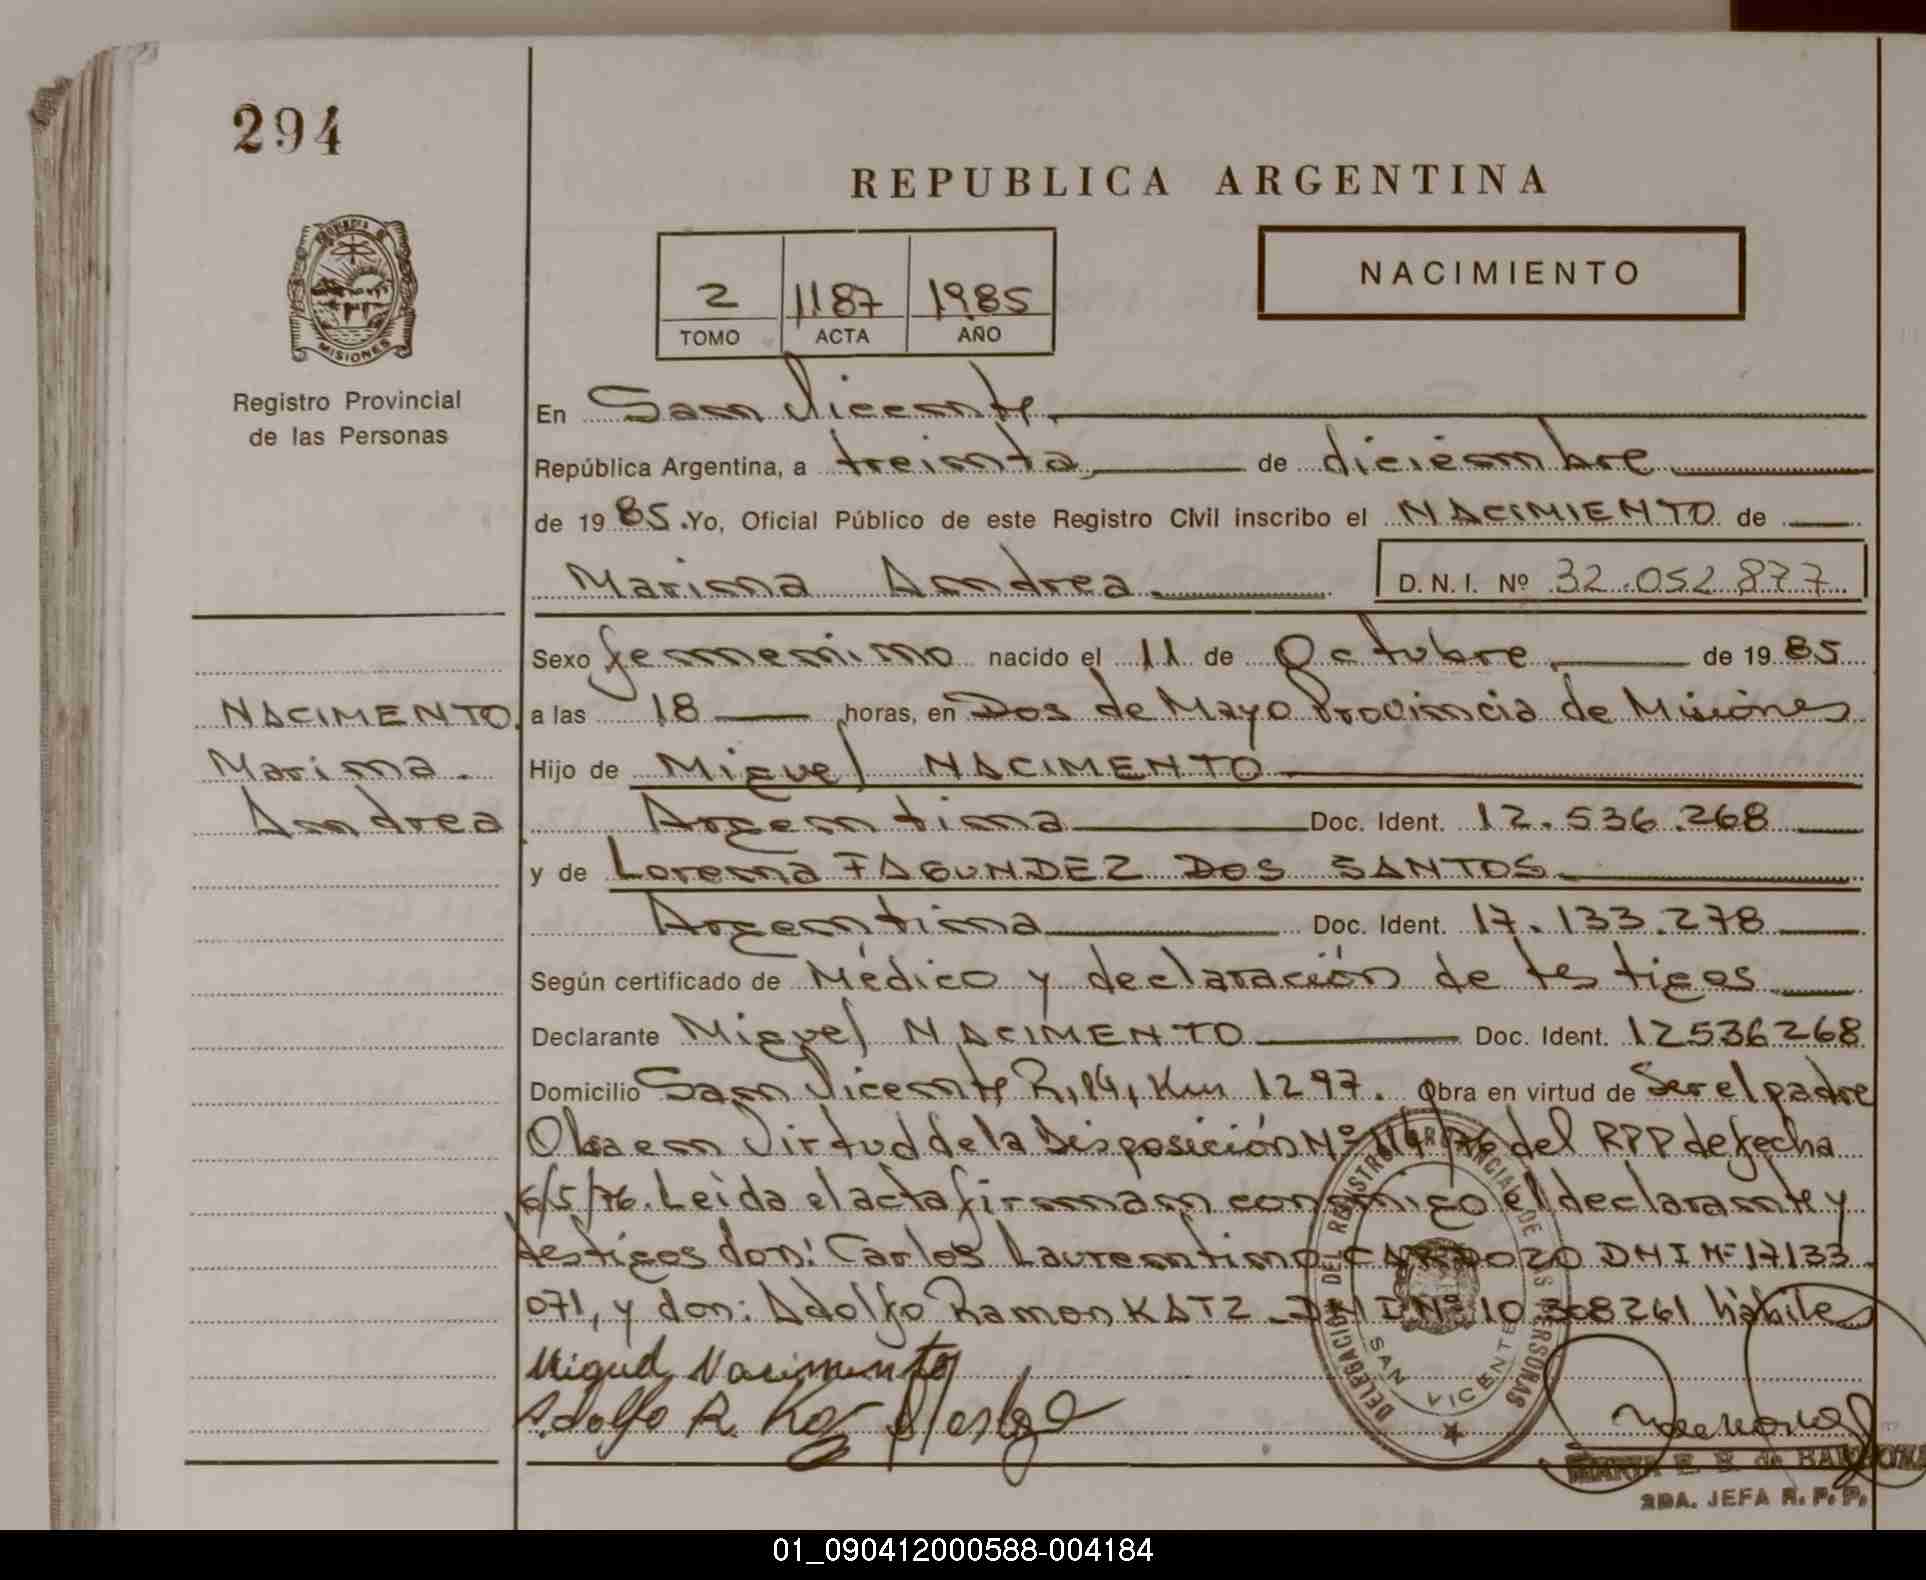 294
REPUBLICA ARGENTINA
PROVINCIA DE
MISIONES
Registro Provincial
de las Personas
2 1187 1985
TOMO ACTA AÑO
NACIMIENTO
En San Vicente
República Argentina, a treinta de diciembre
de 1985. Yo, Oficial Público de este Registro Civil inscribo el NACIMIENTO de
Marina Andrea D.N.I. Nº 32.052.877
Sexo femenino nacido el 11 de Octubre de 1985
NACIMENTO
Marina
Andrea
a las 18 horas, en Dos de Mayo Provincia de Misiones
Hijo de Miguel NACIMENTO
Argentina Doc. Ident. 12.536.268
y de Lorena FAGUNDEZ DOS SANTOS
Argentina Doc. Ident. 17.133.278
Según certificado de Médico y declaración de testigos
Declarante Miguel NACIMENTO Doc. Ident. 12536268
Domicilio San Vicente R, 14, Km 1297. Obra en virtud de Ser el padre
Obra en Virtud de la Disposición Nº 114/76 del RPP de fecha
6/5/76. Leída el acta firman conmigo el declarante y
testigos don: Carlos Laurentino CARDOZO DNI Nº 17133
071, y don: Adolfo Ramon KATZ DNI Nº 10308261 hábiles
Miguel Nacimento
Adolfo R.
DELEGACION DEL REGISTRO PROVINCIAL DE LAS PERSONAS
SAN VICENTE
MARIA E. B. de
2DA. JEFA R. P. P.
01_090412000588-004184